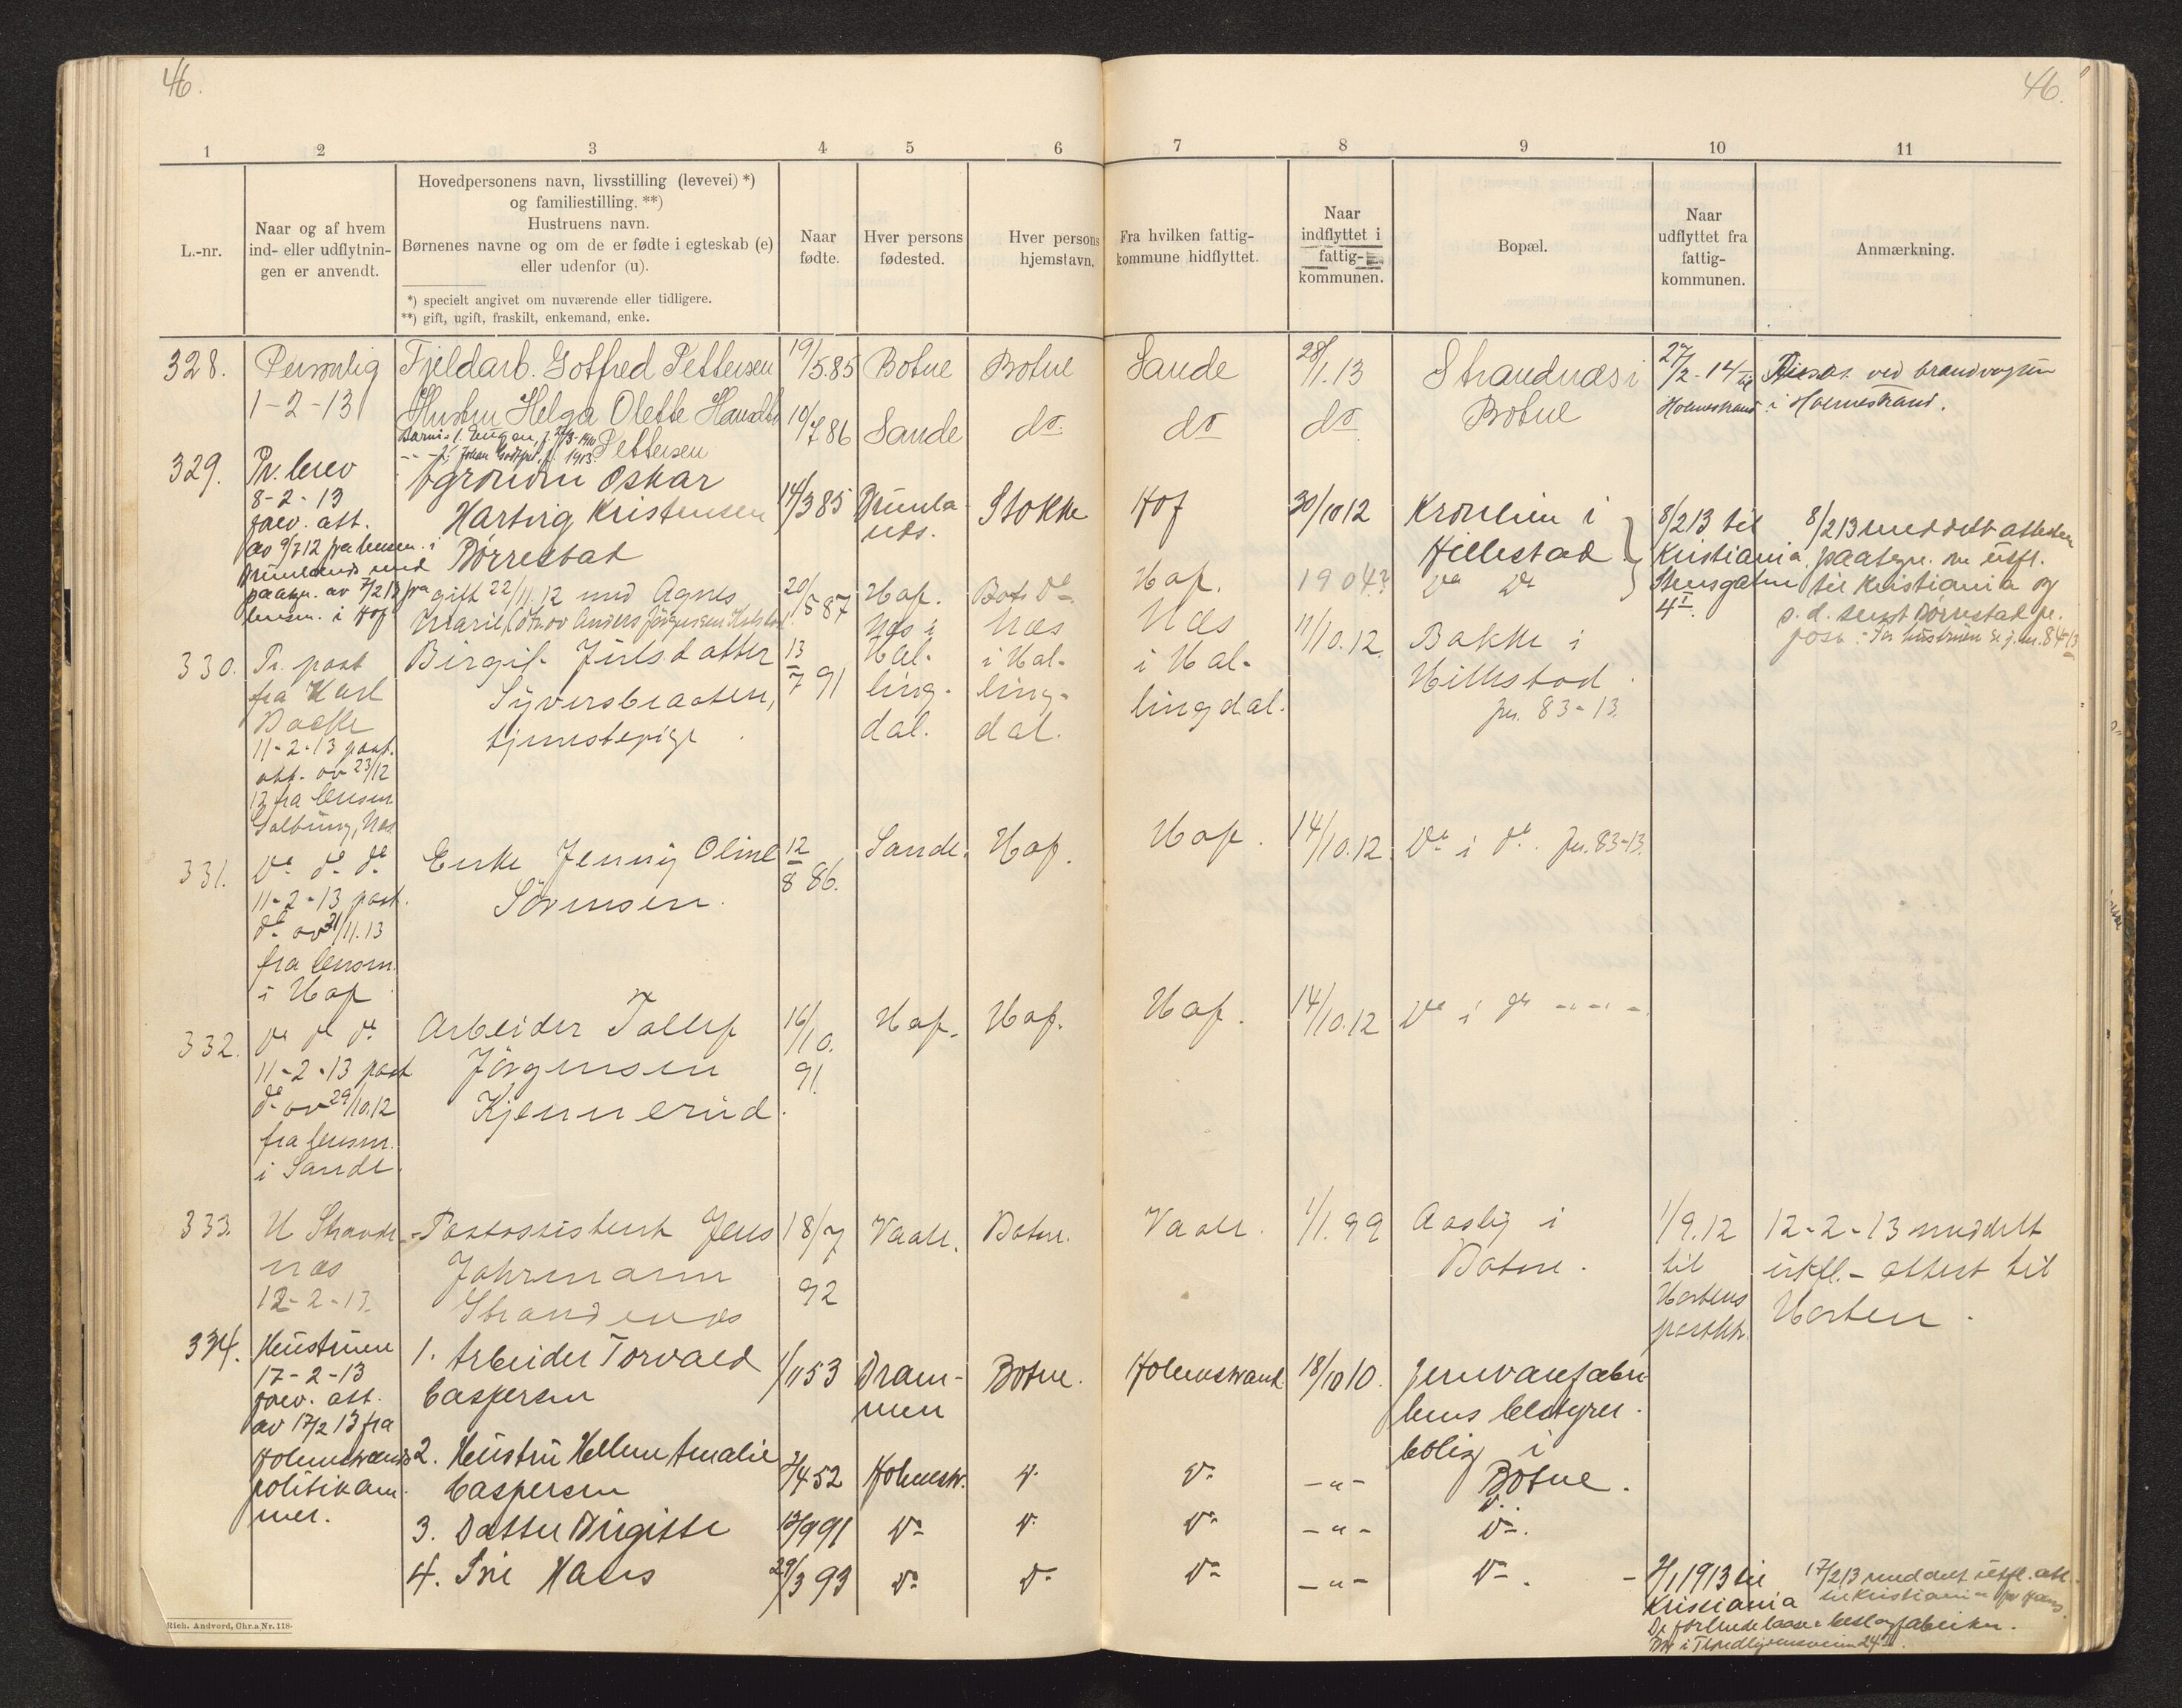 46.
46.
1 2 3 4 5 6 7 8 9 10 11
L.-nr.
Naar og af hvem
ind- eller udflytnin-
gen er anvendt.
Hovedpersonens navn, livsstilling (levevei) *)
og familiestilling. **)
Hustruens navn.
Børnenes navne og om de er fødte i egteskab (e)
eller udenfor (u).
*) specielt angivet om nuværende eller tidligere.
**) gift, ugift, fraskilt, enkemand, enke.
Naar
fødte.
Hver persons
fødested.
Hver persons
hjemstavn.
Fra hvilken fattig-
kommune hidflyttet.
Naar
indflyttet i
fattig-
kommunen.
Bopæl.
Naar
udflyttet fra
fattig-
kommunen.
Anmærkning.
328. Personlig Fjeldarb. Gotfred Pettersen 19/5 85 Botne Botne Sande 28/1.13 Strandnæs i 27/2-14 ved brandvagten
1-2-13 Hustru Helga Olette 10/7 86 Sande do do do Botne Holmestrand i Holmestrand.
Pettersen
329. Pr. brev Agronom Oskar
8-2-13 Hartvig Kristensen 14/3 85 Brunla- Stokke Hof 30/10 12 Kronlien i 8/2 13 til 8/2 13 meddelt attesten
forev. att. nes. Hillestad Kristiania paategn. om utfl.
av 9/7 12 fra lensm. i Børrestad
Brunlanes med
paategn. av 7/2 13 fra gift 22/11.12 med Agnes 20/5 87 Hof. Hof. 1904? do do Stensgaten til Kristiania og
lensm. i Hof 4 I s. d. sendt Børrestad pr.
post.
330. Pr. post Birgit Juls datter 13/7 91 Næs i Næs Næs 11/10.12. Bakke i
fra Karl Syversbraaten, Hal- i Hal- i Hal- Hillestad.
Bakke tjenestepige. ling- ling- lingdal. jnr. 83-13.
11-2-13 post. dal. dal.
att. av 23/12
12 fra lensm.
Golberg, Næs
331. Do do do Enke Jenny Oline 12/8 86. Sande. Hof. Hof. 14/10.12. Do i do. jnr. 83-13.
11-2-13 post. Sörensen.
do av 21/11.13
fra lensm.
i Hof
332. do do do Arbeider Tollef 16/10. 91. Hof. Hof. Hof. 14/10.12 Do i do -"-"-
11-2-13 post Jörgensen
do av 29/10.12 Kjennerud.
fra lensm.
i Sande.
333. H Strand- Postassistent Jens 18/7 92 Vaale. Botne. Vaale. 1/1.99 Aasly i 1/9.12 12-2-13 meddelt
næs Johrmann Botne. til utfl.- attest til
12-2-13. Strandenæs Hortens Horten.
postktr.
334. Hustruen 1. Arbeider Torvald 1/11 53 Dram- Botne. Holmestrand 18/10 10. Jernvarefabri-
17-2-13 Caspersen men kens bestyrer-
forev. att. bolig i
av 17/2 13 fra Botne.
Holmestrands 2. Hustru Hellene Amalie 2/4 52 Holmestr. do do -"- do
politikam- Caspersen
mer. 3. Datter Birgitte 12/9 91 do do do -"- do.
4. Søn Hans 29/3 93 do do do -"- do. - 2/1 1913 til 17/2 13 meddelt utfl. att.
Kristiania til Kristiania for Hans.
De forenede laase & beslagfabriker.
Rich. Andvord, Chr.a Nr. 118-